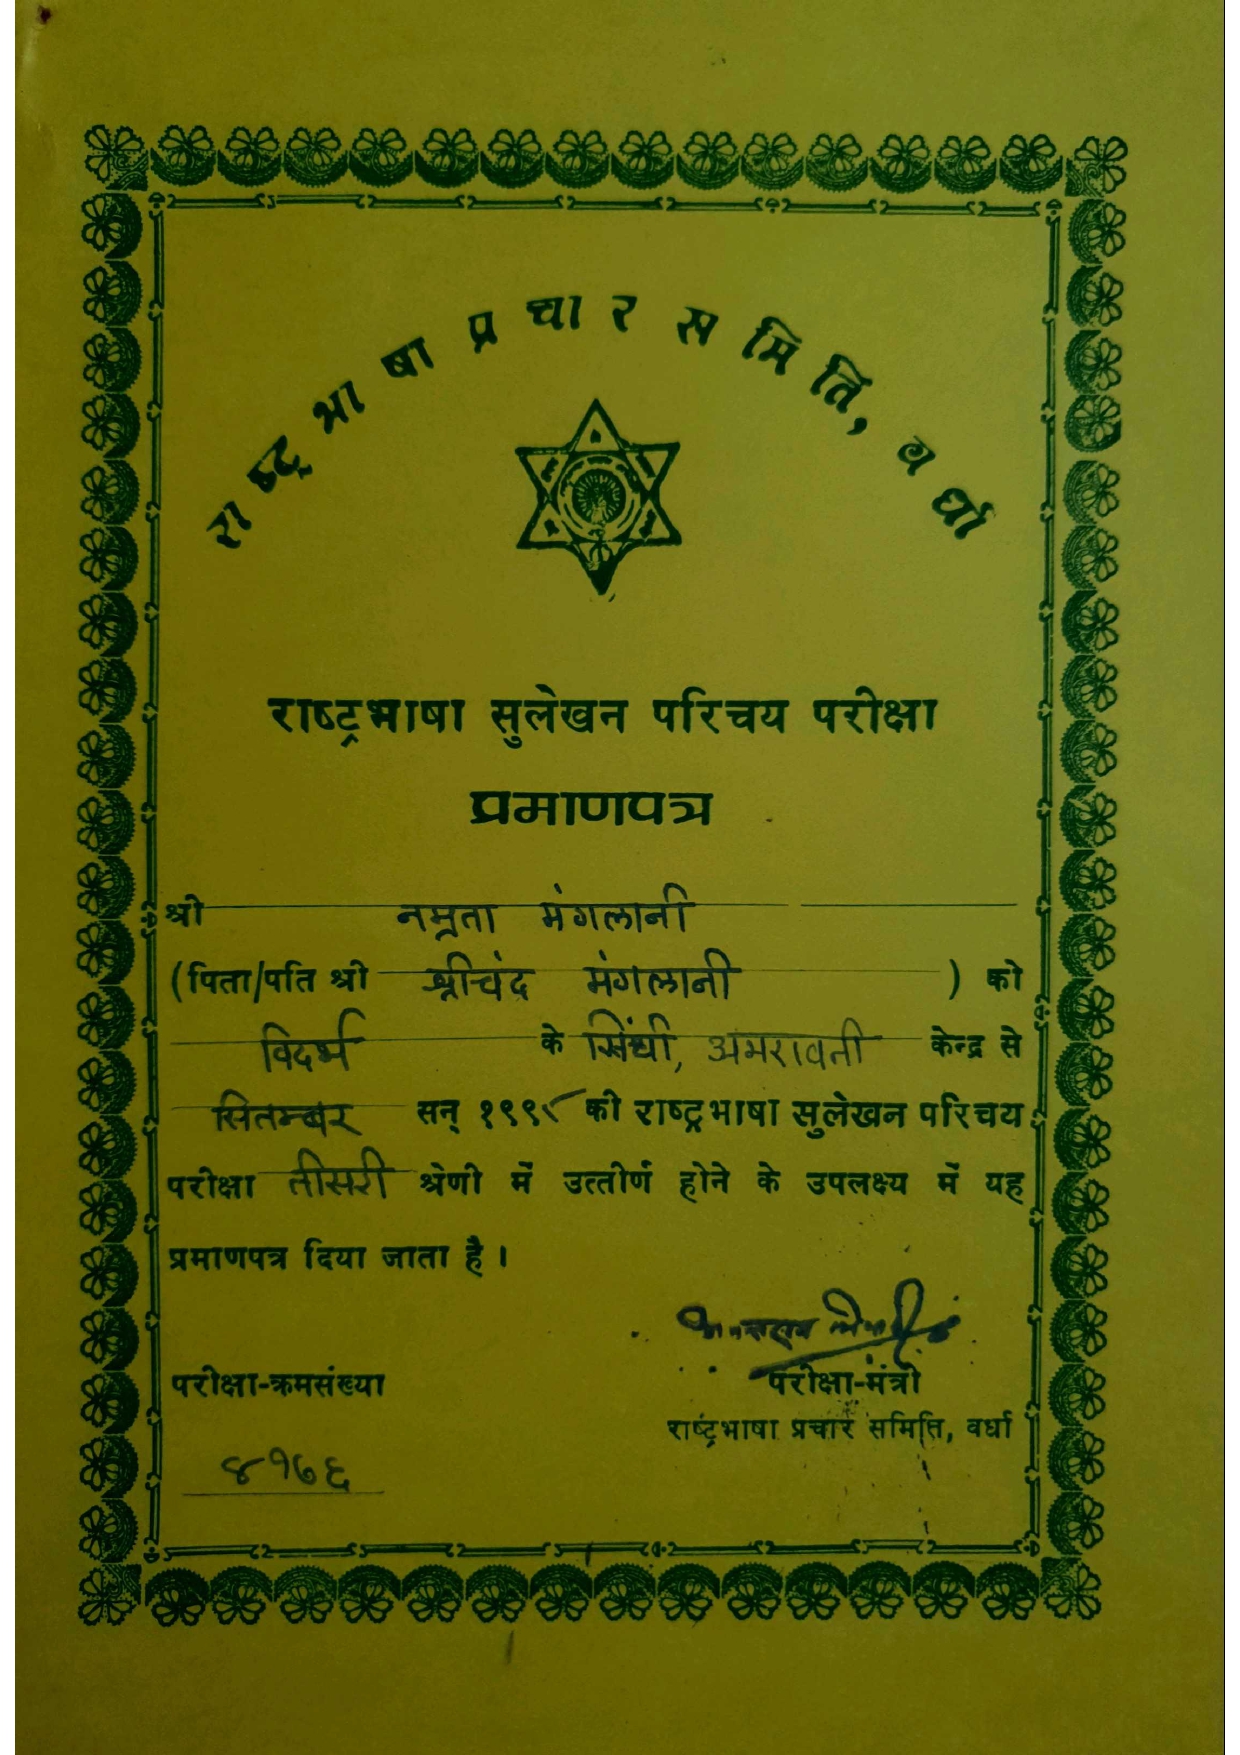 राष्ट्रभाषा प्रचार समिति, वर्धा
राष्ट्रभाषा सुलेखन परिचय परीक्षा
प्रमाणपत्र
श्री नम्रता मंगलानी
(पिता/पति श्री श्रीचंद मंगलानी ) को
विदर्भ के सिंधी, अमरावती केन्द्र से
सितम्बर सन् की राष्ट्रभाषा सुलेखन परिचय
परीक्षा तीसरी श्रेणी में उत्तीर्ण होने के उपलक्ष्य में यह
प्रमाणपत्र दिया जाता है।
परीक्षा-क्रमसंख्या
परीक्षा-मंत्री
राष्ट्रभाषा प्रचार समिति, वर्धा
४१७६